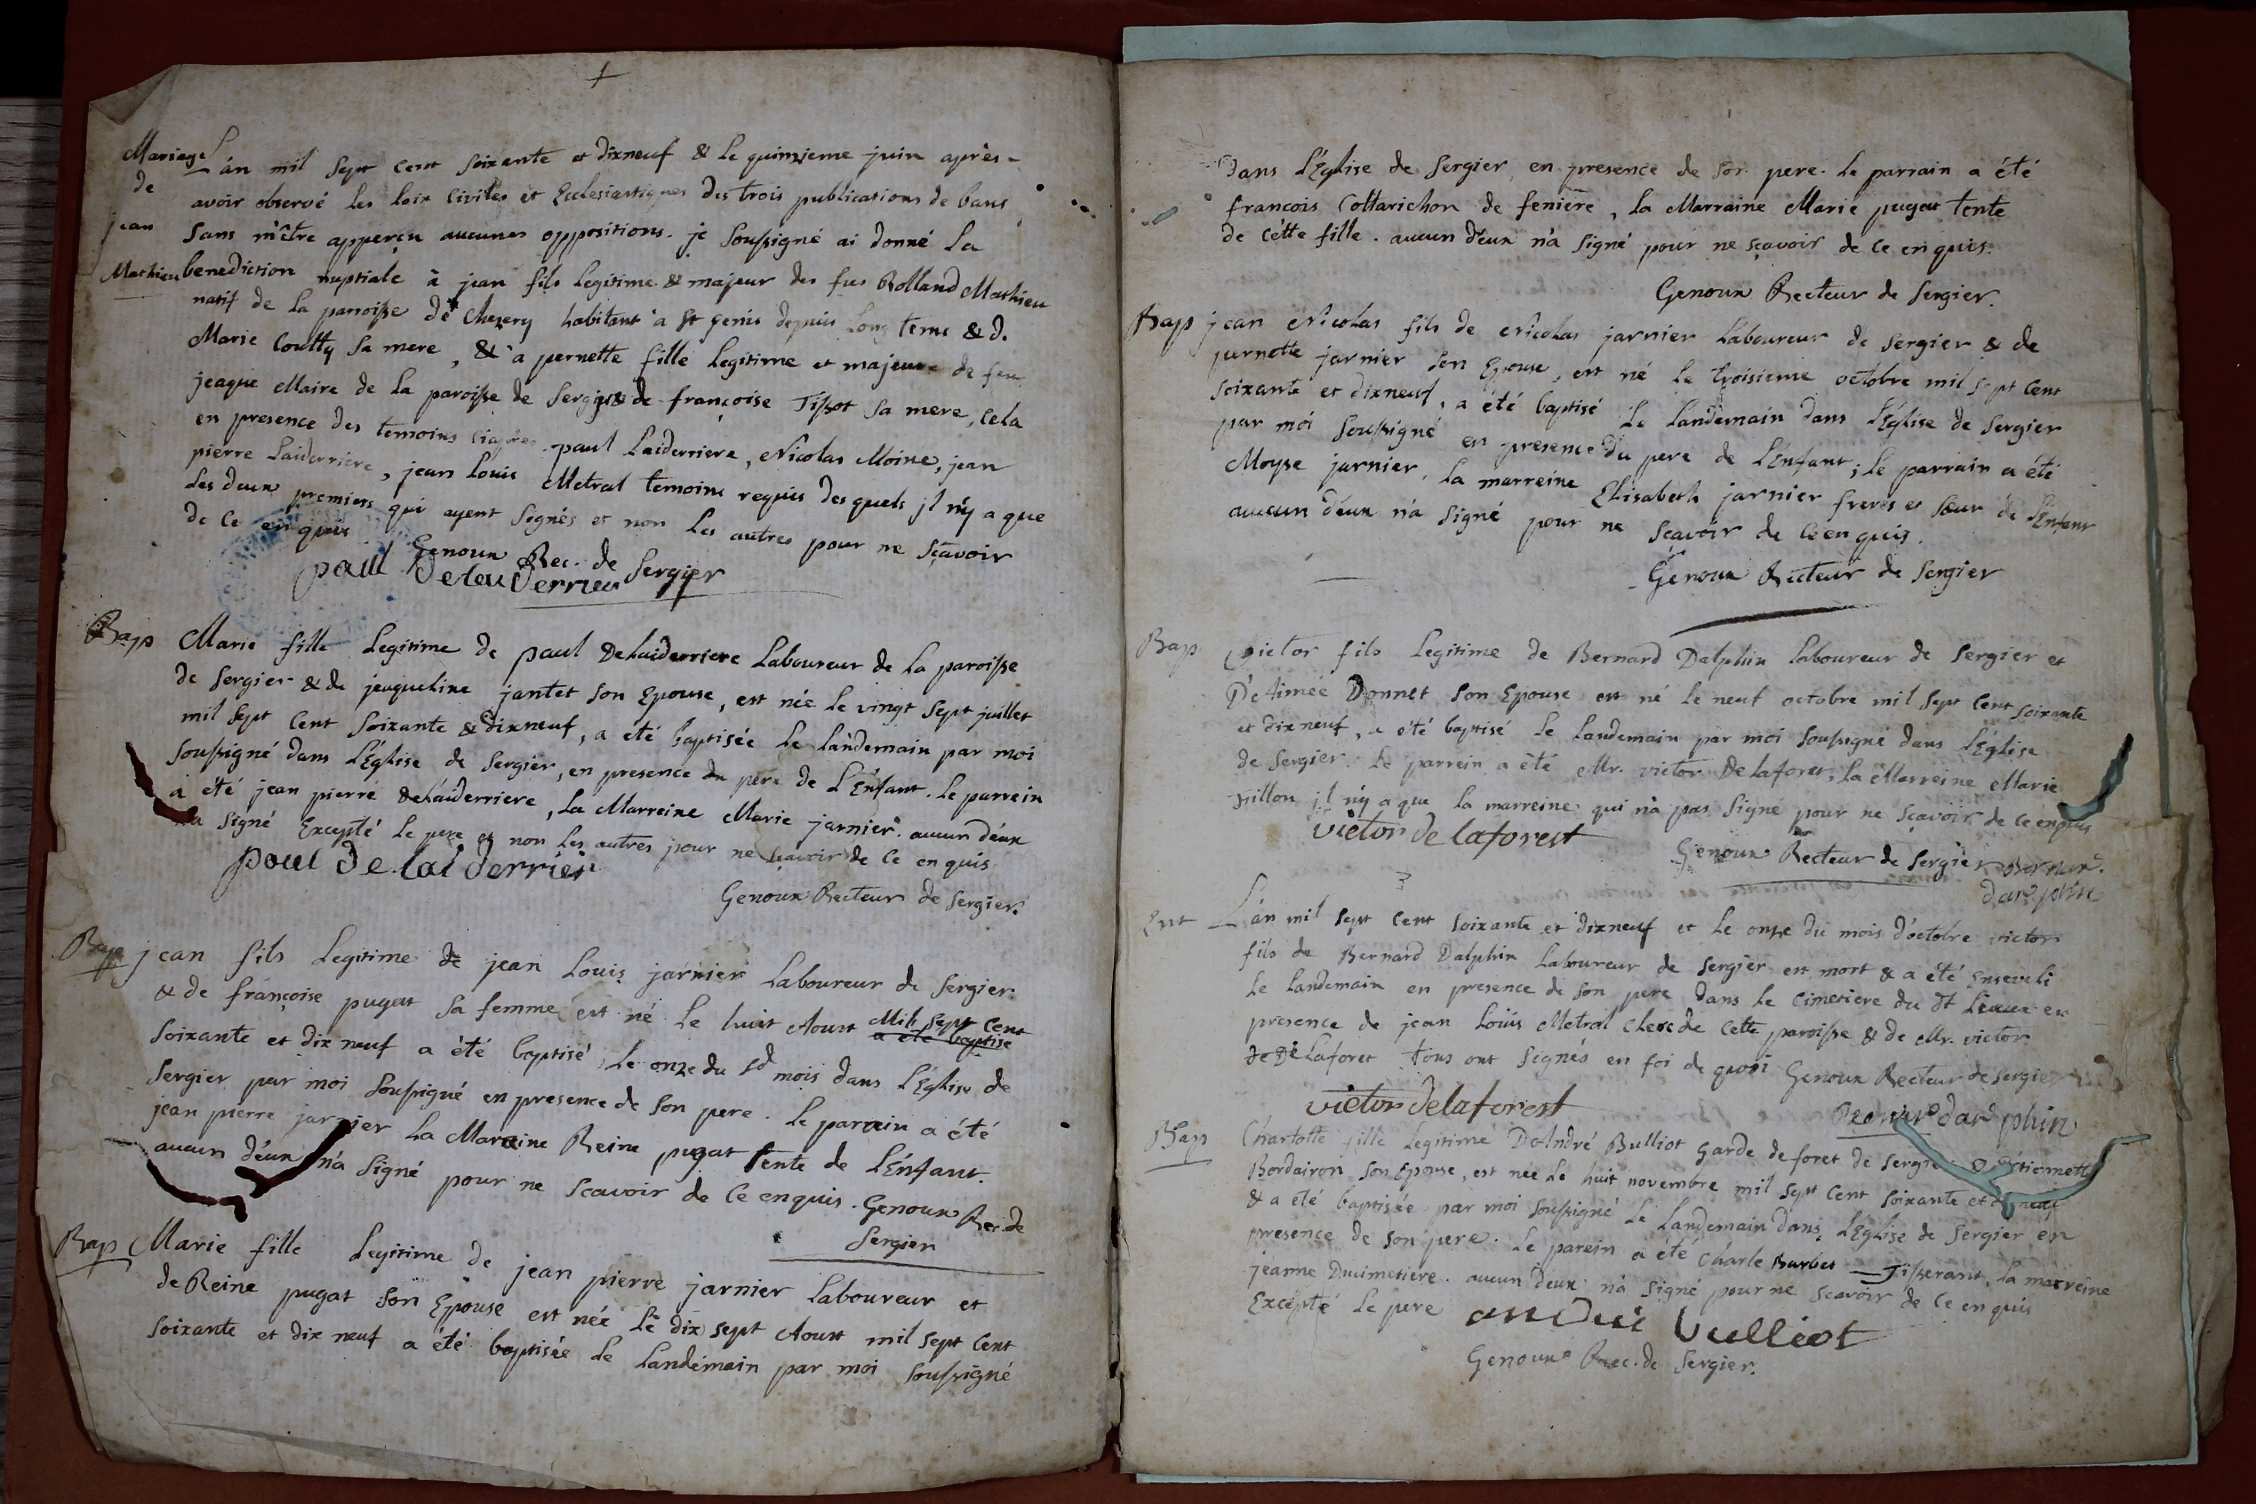 Mariage
de
jean
Mathieu
L'an mil sept cent soixante et dixneuf & le quinzieme juin après
avoir observé les loix civiles et Ecclesiastiques des trois publications de bans
sans m'être apperçu aucunes oppositions. je soussigné ai donné la
benediction nuptiale à jean fils legitime & majeur des fus Rolland Mathieu
natif de la paroisse de Chezery habitant à St genis depuis long tems & d.
Marie Coutty sa mere, & à pernette fille legitime et majeure de feu
jeaque Maire de la paroisse de Sergier & de françoise Tissot sa mere, cela
en presence des temoins paul Laiderriere, Nicolas Moine, jean
pierre Laiderriere, jean Louis Metral temoins requis desquels jl n'y a que
les deux premiers qui ayent signés et non les autres pour ne sçavoir
de ce enquis Genoux Rec. de Sergier
paul Delaiderrier
Bap Marie fille legitime de paul Delaiderriere Laboureur de la paroisse
de Sergier & de jeaqueline jantet son Epouse, est née le vingt sept juillet
mil sept cent soixante & dixneuf, a été baptisée le landemain par moi
soussigné dans l'Eglise de Sergier, en presence du pere de l'Enfant. le parrein
a été jean pierre Delaiderriere, la Marreine Marie jarnier. aucun d'eux
n'a signé Excepté le pere et non les autres pour ne sçavoir de ce enquis
paul De lai derrier
Genoux Recteur de Sergier.
Bap jean fils legitime de jean Louis jarnier Laboureur de Sergier
& de françoise pugat sa femme est né le huit Aoust Mil sept cent
a été baptisé
soixante et dix neuf a été baptisé le onze du sd mois dans l'Eglise de
Sergier par moi soussigné en presence de son pere. le parrain a été
jean pierre jarnier la Maraine Reine pugat tente de l'Enfant.
aucun d'eux n'a signé pour ne sçavoir de ce enquis. Genoux Rec. de
Sergier
Bap Marie fille legitime de jean pierre jarnier laboureur et
de Reine pugat son Epouse est née le dix sept Aoust mil sept cent
soixante et dix neuf a été baptisée le landemain par moi soussigné
dans l'Eglise de Sergier en presence de son pere. le parrain a été
francois Cottarichon de feniere, la Marraine Marie pugat tente
de cétte fille. aucun d'eux n'a signé pour ne sçavoir de ce enquis.
Genoux Recteur de Sergier.
Bap jean Nicolas fils de Nicolas jarnier Laboureur de Sergier & de
pernette jarnier son Epouse, est né le troisieme octobre mil sept cent
soixante et dixneuf, a été baptisé le landemain dans l'Église de Sergier
par moi soussigné en presence du pere de l'Enfant; le parrain a été
Moyse jarnier, la marreine Elisabeth jarnier freres et sœur de l'Enfant
aucun d'eux n'a signé pour ne sçavoir de ce enquis.
Genoux Recteur de Sergier
Bap victor fils legitime de Bernard Dalphin laboureur de Sergier et
D'Aimée Donnet son Epouse est né le neuf octobre mil sept cent soixante
et dixneuf, a été baptisé le landemain par moi soussigné dans l'Église
de Sergier. le parrein a été Mr. victor Delaforet, la Marreine Marie
jl n'y a que la marreine qui n'a pas signé pour ne sçavoir de ce enquis
victor de laforest
Genoux Recteur de Sergier Bernard
darphin
Ent L'an mil sept cent soixante et dixneuf et le onze du mois d'octobre victor
fils de Bernard Dalphin laboureur de Sergier est mort & a été Enseveli
le landemain en presence de son pere dans le cimetiere du dt lieu en
presence de jean Loüis Metral clerc de cette paroisse & de Mr. victor
de Delaforet tous ont signés en foi de quoi Genoux Recteur de Sergier
victor delaforest
Bernard darphin
Bap Charlotte fille legitime D'André Bulliot garde de foret de Sergier & d'Etiennette
Bordairon son Epouse, est née le huit novembre mil sept cent soixante et dixneuf
& a été baptisée par moi soussigné le landemain dans l'Église de Sergier en
presence de son pere. le parein a été Charle Barbet Tisserant, la marreine
jeanne Ducimetiere. aucun d'eux n'a signé pour ne sçavoir de ce enquis
Excepté le pere andre Vulliot
Genoux Rec. de Sergier.